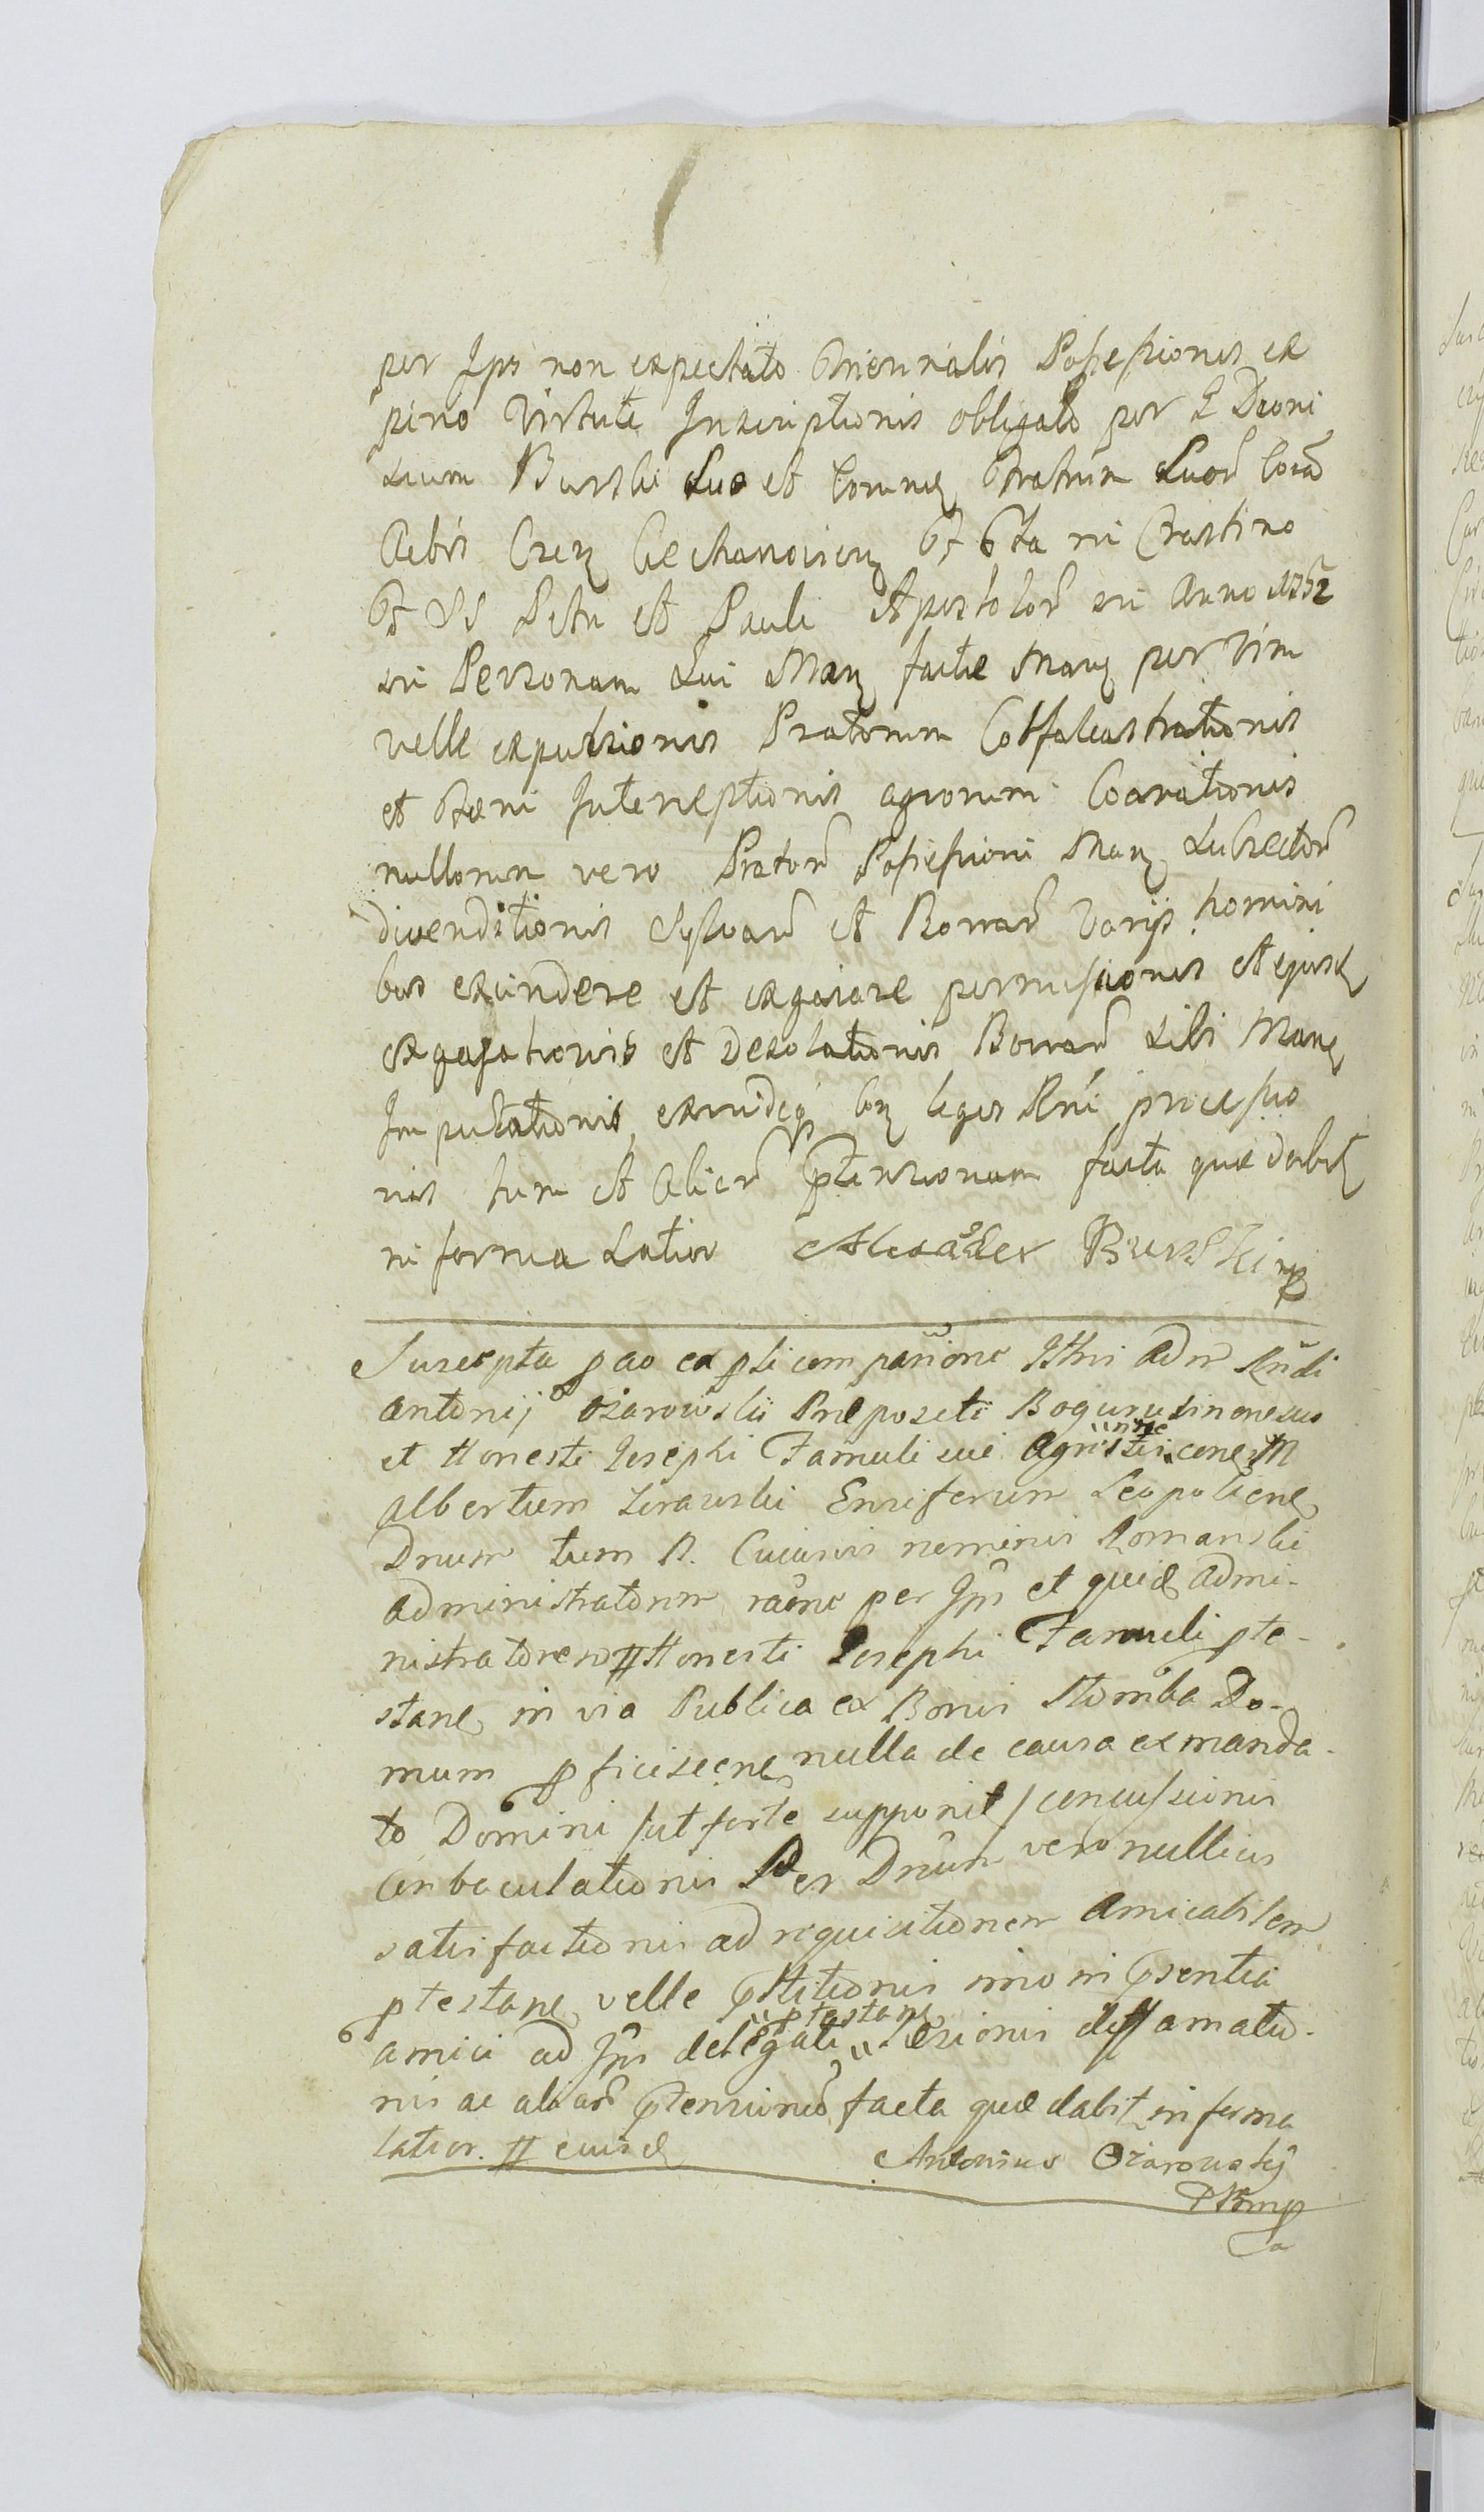 per Jps non expectato triennalis Possessionis ex
pirio Virtute Inscriptionis obligato per G Dioni
sium Burski Suo et Comuns fratrum Suor̃ Corã
Actis Crz Ciechanoviens fr 6ta in Crastino
fti SS Petri et Pauli Apostolor̃ in Anno 1752
in Personam Sui Man facte Man per Vim
velle expulsionis Pratorum Cosfalcastrationis
et fæni Interceptionis agrorum Coarationis
nullorum vero Prator̃ Possessioni Man Subrector̃
divenditionis Sylvar̃ et Borrar̃ Varijs homini
bus excindere et exgaiare permissionis et ejusd
exgajationis et Desolationis Borrar̃ Sibi Mang
Imputationis, exindeq con leges Rni processio
nis tum et Alior̃ ptensionum facta quæ dabit
in forma Latior Alexãder Burski mp
Suscepta pao ex pli comparione Jllris Adm Rñdi
Antonij Ożarowski Præpositi Bogurusinonesis
et Honesti Josephi Famuli sui Agnistei cone M
Albertum Zurawski Ensiferum Leopoliene
Dnum tum N. Cuiusvis nominis Romanski
Administratorem raõne per Jps et quid Admi-
nistratorem # Honesti Josephi Famuli pte-
stane in via Publica ex Bonis Stomba Do-
mum pficiscene nulla de causa ex manda-
to Domini /ut forte supponit/ concussionis
Cinbaculationis Per Dnum vero nullius
satisfactionis ad requisitionem Amicabilem
ptestane velle pstitionis imo in psentia
amici ad Jps delegati "ptestane" læsionis diffamatio-
nis ac aliar̃ ptensionũ facta quæ dabit in forma
latior. # eiusd Antonius Ożarowskj
PBmp